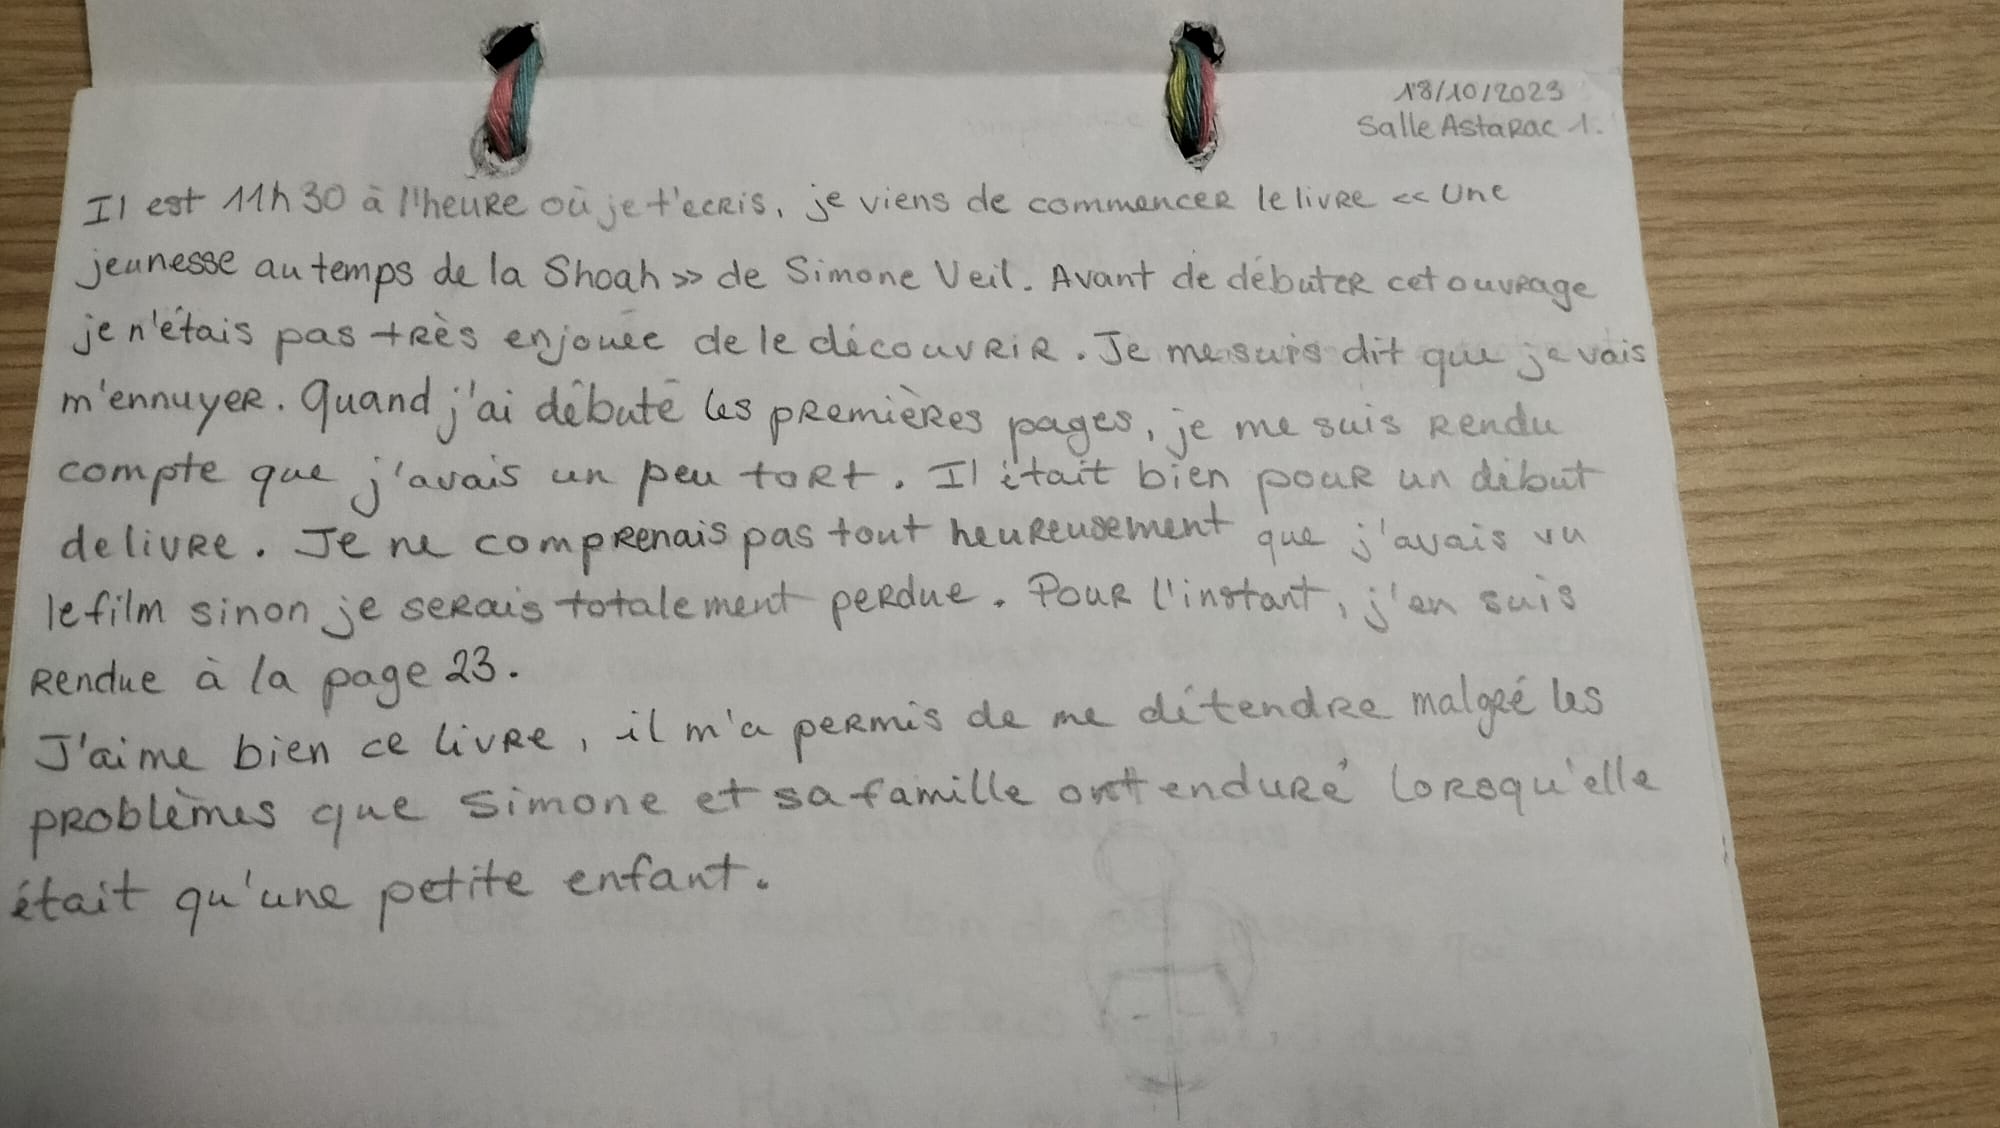 18/10/2023
Salle Astarac 1.
Il est 11h30 à l'heure où je t'ecris, je viens de commencer le livre << Une
jeunesse au temps de la Shoah >> de Simone Veil. Avant de débuter cet ouvrage
je n'étais pas très enjouée de le découvrir. Je me suis dit que je vais
m'ennuyer. Quand j'ai débuté les premières pages, je me suis rendu
compte que j'avais un peu tort. Il était bien pour un début
de livre. Je ne comprenais pas tout heureusement que j'avais vu
le film sinon je serais totalement perdue. Pour l'instant, j'en suis
rendue à la page 23.
J'aime bien ce livre, il m'a permis de me détendre malgré les
problèmes que Simone et sa famille ont enduré lorsqu'elle
était qu'une petite enfant.